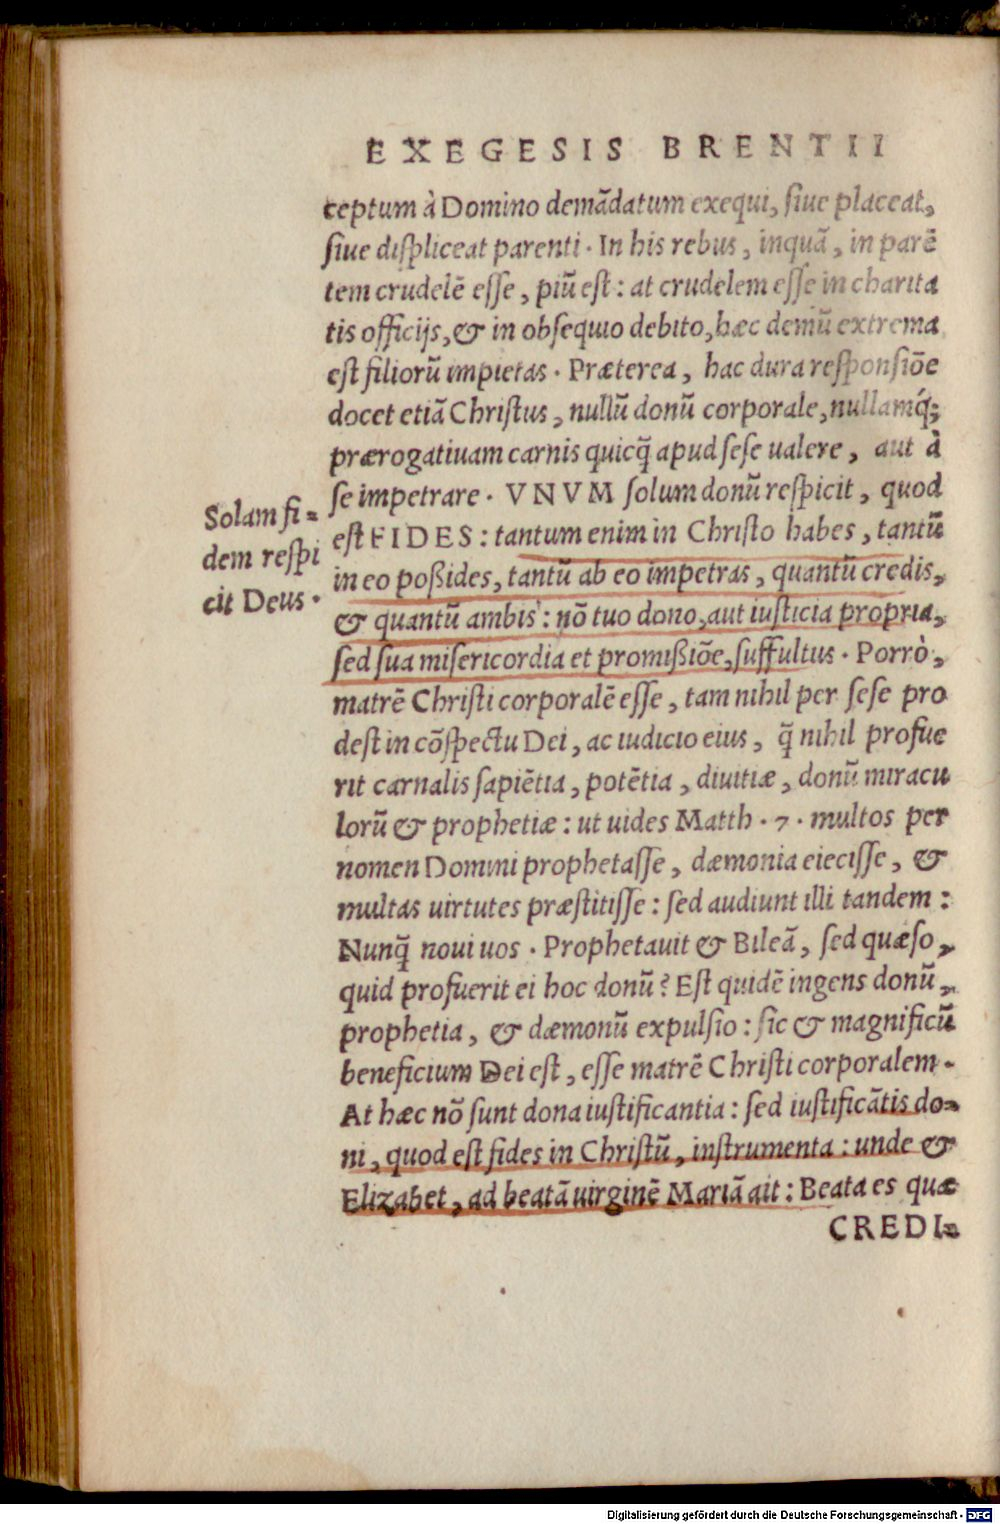 EXEGESIS BRENTII
ceptum à Domino demãdatum exequi, ſiue placeat,
ſiue diſpliceat parenti. In his rebus, inquã, in parẽ
tem crudelẽ eſſe, piũ eſt: at crudelem eſſe in charita
tis officijs, & in obſequio debito, hæc demũ extrema
eſt filiorũ impietas. Præterea, hac dura reſponſiõe
docet etiã Chriſtus, nullũ donũ corporale, nullamq́;
prærogatiuam carnis quicq̃ apud ſeſe ualere, aut à
ſe impetrare. VNVM ſolum donũ reſpicit, quod
eſt FIDES: tantum enim in Chriſto habes, tantũ
in eo poßides, tantũ ab eo impetras, quantũ credis,
& quantũ ambis: nõ tuo dono, aut iuſticia propria,
ſed ſua miſericordia et promißiõe, ſuffultus. Porrò,
matrẽ Chriſti corporalẽ eſſe, tam nihil per ſeſe pro
deſt in cõſpectu Dei, ac iudicio eius, q̃ nihil profue
rit carnalis ſapiẽtia, potẽtia, diuitiæ, donũ miracu
lorũ & prophetiæ: ut uides Matth. 7. multos per
nomen Domini prophetaſſe, dæmonia eieciſſe, &
multas uirtutes præſtitiſſe: ſed audiunt illi tandem:
Nunq̃ noui uos. Prophetauit & Bileã, ſed quæſo,
quid profuerit ei hoc donũ? Eſt quidẽ ingens donũ,
prophetia, & dæmonũ expulſio: ſic & magnificũ
beneficium Dei eſt, eſſe matrẽ Chriſti corporalem.
At hæc nõ ſunt dona iuſtificantia: ſed iuſtificãtis do=
ni, quod eſt fides in Chriſtũ, inſtrumenta: unde &
Elizabet, ad beatã uirginẽ Mariã ait: Beata es quæ
CREDI=
Solam fi=
dem reſpi
cit Deus.
Digitalisierung gefördert durch die Deutsche Forschungsgemeinschaft - DFG